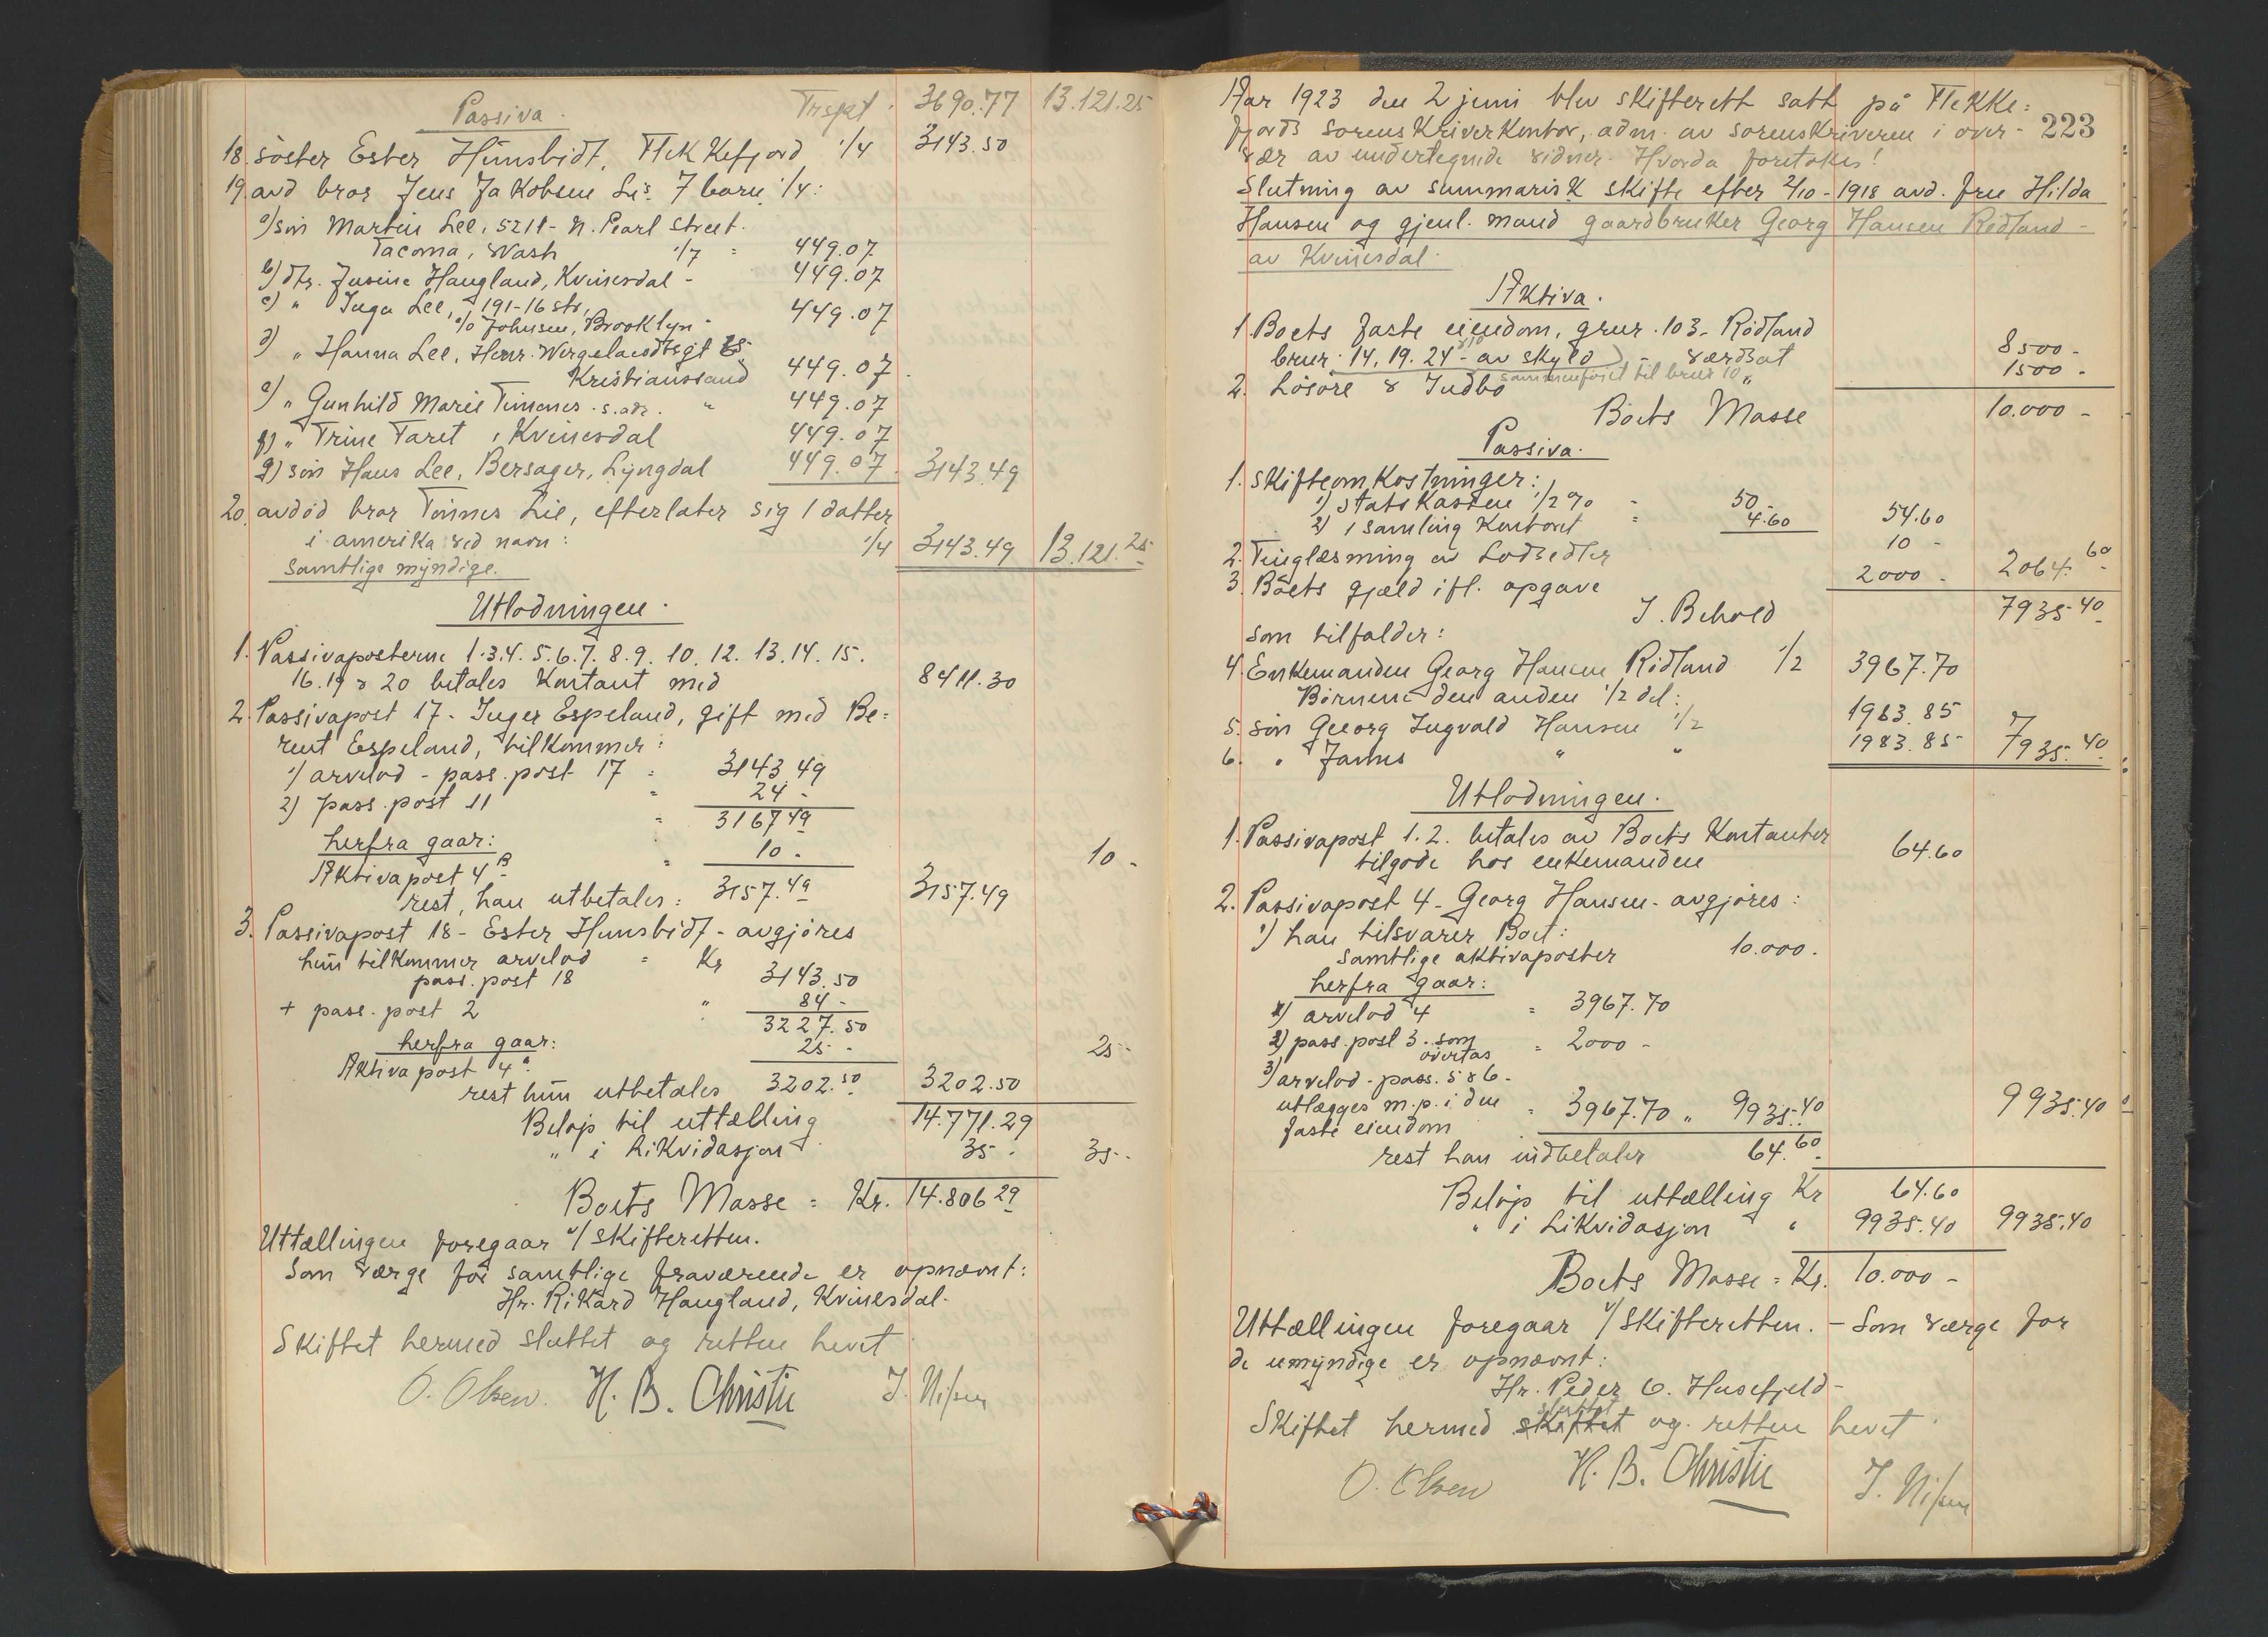 Passiva. Trspt. 3690.77 13.121.25
18. söster Ester Hunsbidt, Flekkefjord 1/4 3143.50
19. avd bror Jens Jakobsen Lis 7 barn 1/4:
a) sön Martin Lee, 5211 - N. Pearl Street.
Tacoma, Wash 1/7 = 449.07
b) dtr. Jusine Haugland, Kvinesdal - 449.07
c) " Inga Lee, 191-16 str,
c/o Johnsen, Brooklyn - 449.07
d) " Hanna Lee, Henr. Wergelandsgt
Kristianssand 449.07
e) " Gunhild Marie Timenes. s.adr. " 449.07
f) " Trine Faret, Kvinesdal 449.07
g) sön Hans Lee, Bersager, Lyngdal 449.07 3143.49
20. avdöd bror Tönnes Lie, efterlater sig 1 datter
i amerika ved navn: 1/4 3143.49 13.121.25
Samtlige myndige.
Utlodningen.
1. Passivaposterne 1.3.4.5.6.7.8.9.10.12.13.14.15.
16.19 & 20 betales kontant med 8411.30
2. Passivapost 17 - Inger Espeland, gift med Be=
rent Espeland, tilkommer:
1) arvelod - pass. post 17 = 3143.49
2) pass. post 11 = 24 -
= 3167 49
herfra gaar:
Aktivapost 4 B = 10 - 10 -
rest, han utbetales: 3157.49 3157.49
3. Passivapost 18 - Ester Hunsbidt - avgjöres
hun tilkommer arvelod = Kr
pass. post 18 3143.50
+ pass. post 2 " 84 -
3227.50
herfra gaar:
Aktiva post 4 a. 25 - 25 -
rest hun utbetales 3202.50 3202.50
Belöp til uttælling 14.771.29
" i Likvidasjon 35 - 35 -
Boets Masse = Kr. 14.806 29
Uttællingen foregaar v/ skifteretten.
Som værge for samtlige fraværende er opnævnt:
Hr. Rikard Haugland, Kvinesdal -
Skiftet hermed sluttet og retten hevet
O. Olsen. H. B. Christie J. Nilsen
Aar 1923 den 2 juni blev skifterett satt på Flekke=
fjords Sorenskriverkontor, adm. av sorenskriveren i over- 223
vær av undertegnede vidner. Hvorda foretokes!
Slutning av summarisk skifte efter 2/10 - 1918 avd. fru Hilda
Hansen og gjenl. mand gaardbruker Georg Hansen Rødland -
av Kvinesdal.
Aktiva.
1. Boets faste eiendom, gnr. 103 - Rødland
brnr. 14, 19. 24 - av skyld - værdsat 8500 -
sammenföiet til brnr 10
2. Lösöre & Indbo " 1500 -
Boets Masse 10.000 -
Passiva.
1. skifteomkostninger:
1) statskassen 1/2 % - 50 -
2) 1 samling kontoret = 4.60 54.60
2. Tinglæsning av Lodsedler 10 -
3. Boets gjæld ifl. opgave 2000 - 2064.60
I. Behold 7935.40
som tilfalder:
4. Enkemanden Georg Hansen Rødland 1/2 3967.70
Börnene den anden 1/2 del:
5. sön Georg Ingvald Hansen 1/2 1983.85
6. " " " 1983.85 7935.40
Utlodningen.
1. Passivapost 1.2. betales av Boets Kontanter
tilgode hos enkemanden 64.60
2. Passivapost 4 - Georg Hansen - avgjöres:
1) han tilsvarer Boet:
samtlige aktivaposter 10.000.
herfra gaar:
1) arvelod 4 = 3967.70
2) pass. post 3. som
overtas = 2000 -
3) arvelod - pass. 5 & 6 -
utlægges m.p. i den
faste eiendom = 3967.70 " 9935.40 9935.40
rest han indbetaler 64.60
Belöp til uttælling Kr 64.60
" i Likvidasjon " 9935.40 9935.40
Boets Masse = Kr. 10.000 -
Uttællingen foregaar v/ skifteretten. - Som værge for
de umyndige er opnævnt:
Hr. Peder O. Husefjeld -
sluttet
Skiftet hermed skiftet og retten hevet
O. Olsen H. B. Christie J. Nilsen